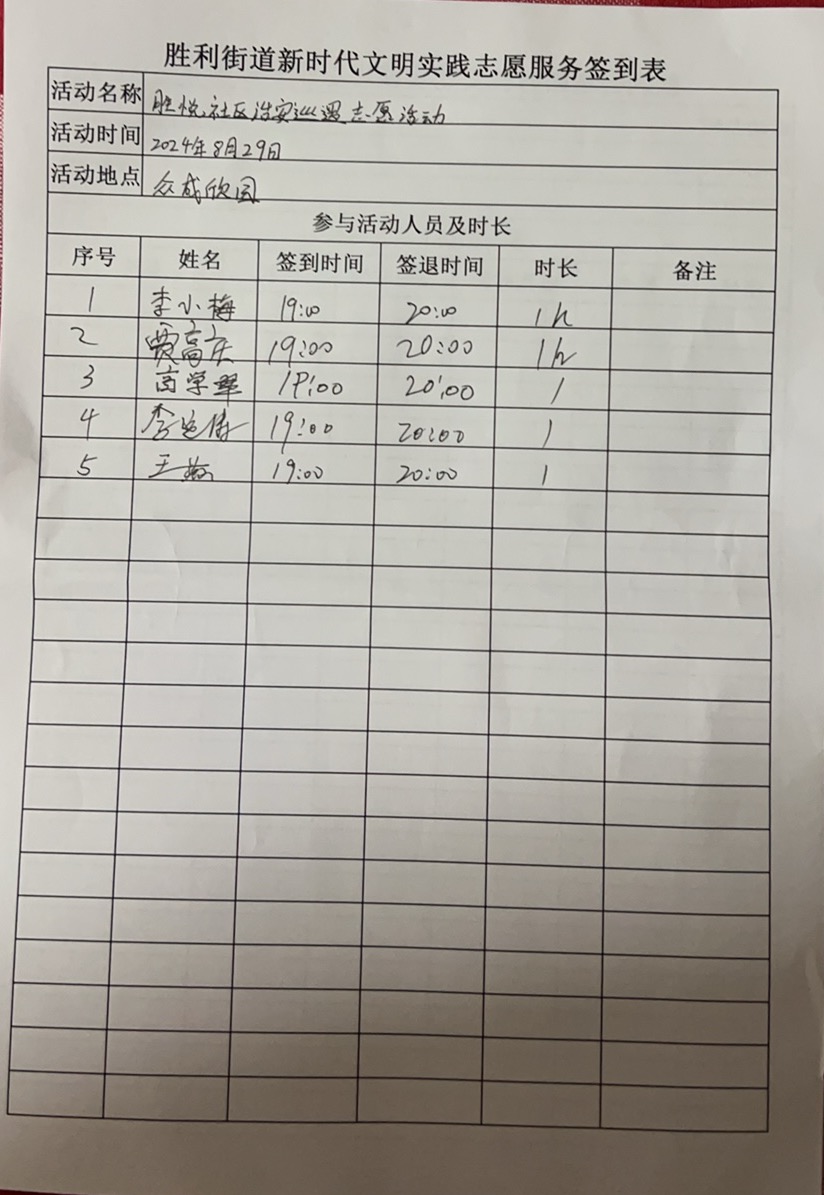 胜利街道新时代文明实践志愿服务签到表
活动名称 胜悦社区治安巡逻志愿活动
活动时间 2024年8月29日
活动地点 众成欣园
参与活动人员及时长
序号 姓名 签到时间 签退时间 时长 备注
1 李小梅 19:00 20:00 1h
2 贾高庆 19:00 20:00 1h
3 商学翠 19:00 20:00 1
4 李 19:00 20:00 1
5 王 19:00 20:00 1